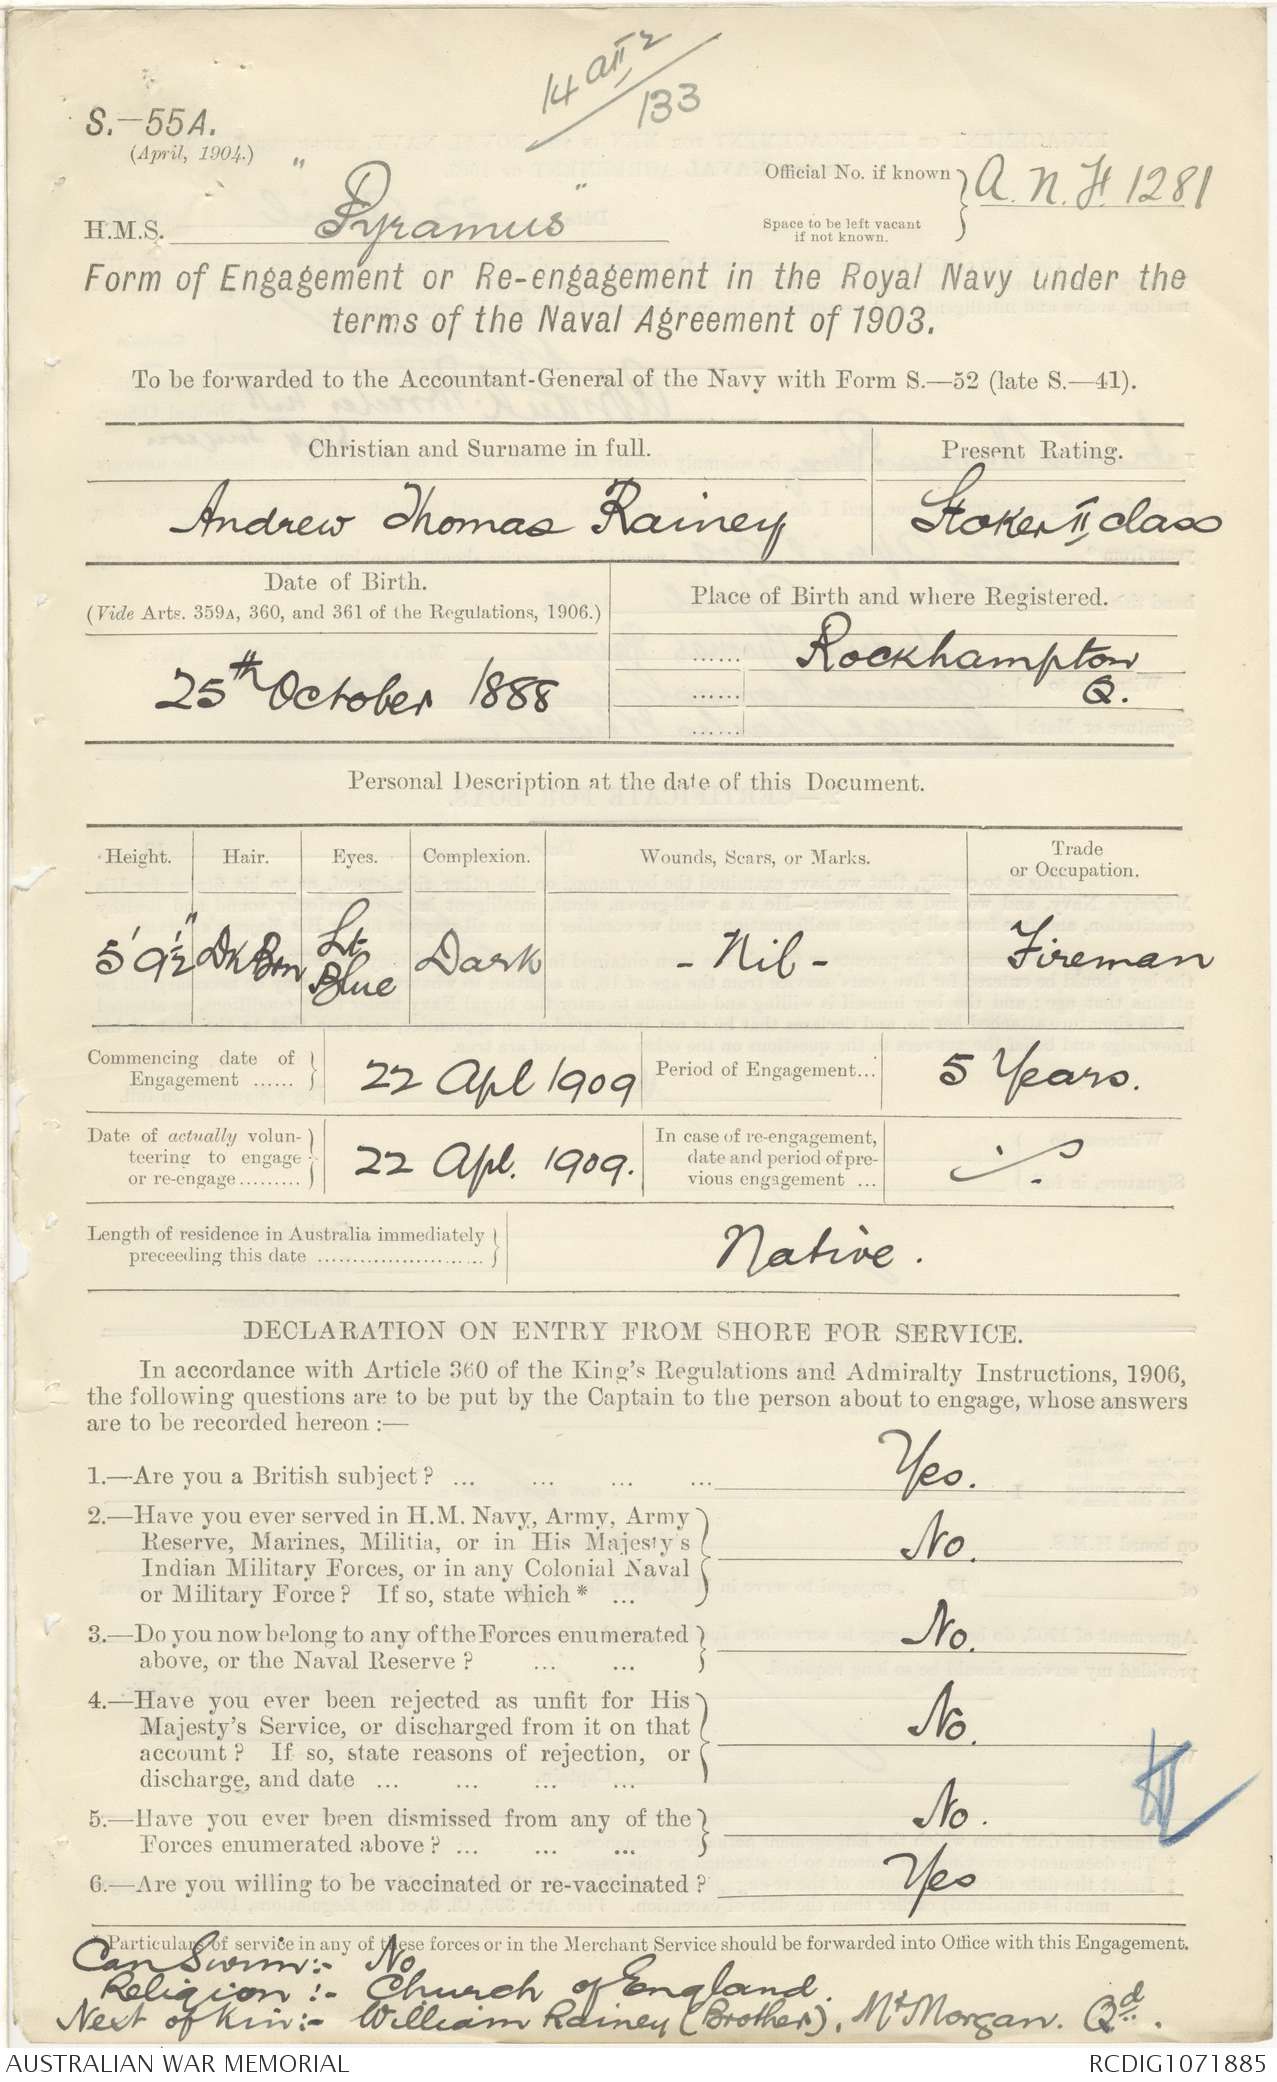 14 aII 2
133
S.—55A.
(April, 1904.)
Official No. if known
A. N. F. 1281
Space to be left vacant
if not known.
H.M.S. "Pyramus"
Form of Engagement or Re-engagement in the Royal Navy under the
terms of the Naval Agreement of 1903.
To be forwarded to the Accountant-General of the Navy with Form S.—52 (late S.—41).
Christian and Surname in full. Present Rating.
Andrew Thomas Rainey Stoker II class
Date of Birth.
(Vide Arts. 359A, 360, and 361 of the Regulations, 1906.)
Place of Birth and where Registered.
25th October 1888
...... Rockhampton
...... Q.
......
Personal Description at the date of this Document.
Height. Hair. Eyes. Complexion. Wounds, Scars, or Marks. Trade
or Occupation.
5' 9½" Dk Brn Lt Blue Dark - Nil - Fireman
Commencing date of
Engagement ...... 22 Apl 1909 Period of Engagement... 5 Years.
Date of actually volun-
teering to engage
or re-engage......... 22 Apl. 1909.
In case of re-engagement,
date and period of pre-
vious engagement ...
Length of residence in Australia immediately
preceeding this date ........................ Native.
DECLARATION ON ENTRY FROM SHORE FOR SERVICE.
In accordance with Article 360 of the King's Regulations and Admiralty Instructions, 1906,
the following questions are to be put by the Captain to the person about to engage, whose answers
are to be recorded hereon :—
1.—Are you a British subject? ... ... ... ... Yes.
2.—Have you ever served in H.M. Navy, Army, Army
Reserve, Marines, Militia, or in His Majesty's
Indian Military Forces, or in any Colonial Naval
or Military Force? If so, state which * ... No.
3.—Do you now belong to any of the Forces enumerated
above, or the Naval Reserve? ... ... No.
4.—Have you ever been rejected as unfit for His
Majesty's Service, or discharged from it on that
account? If so, state reasons of rejection, or
discharge, and date ... ... ... ... No.
5.—Have you ever been dismissed from any of the
Forces enumerated above? ... ... ... No.
6.—Are you willing to be vaccinated or re-vaccinated? Yes
* Particulars of service in any of these forces or in the Merchant Service should be forwarded into Office with this Engagement.
Can Swim:- No
Religion :- Church of England.
Next of Kin:- William Rainey (Brother), Mt Morgan. Qd.
AUSTRALIAN WAR MEMORIAL RCDIG1071885